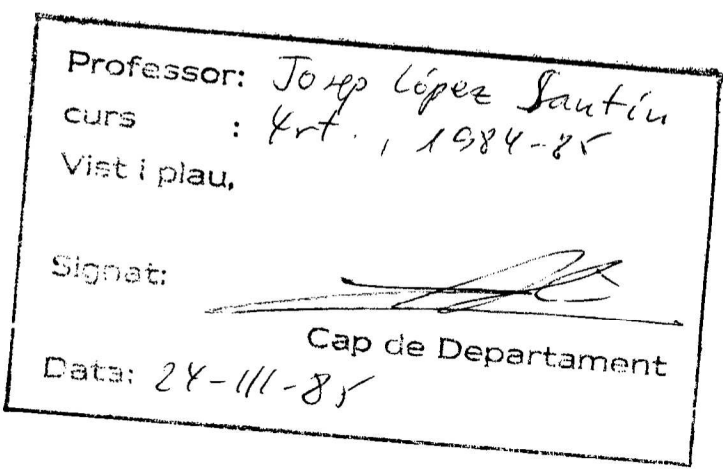 Professor: Josep López Santín
curs : 4rt., 1984-85
Vist i plau,
Signat:
Cap de Departament
Data: 24-III-85